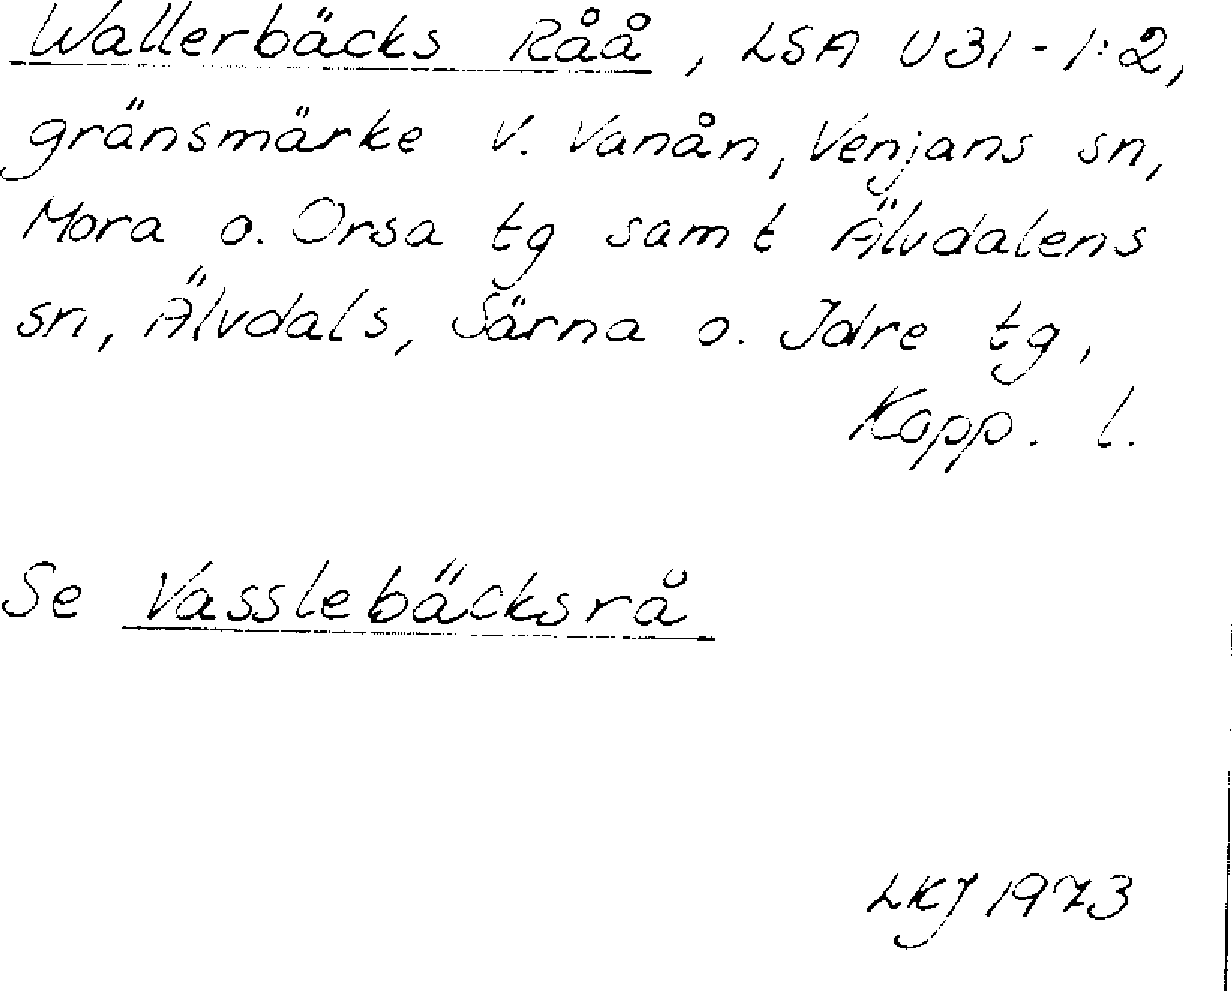 Wallerbäcks Råå, LSA U31-1:2,
gränsmärke V. Vanån, Venjans sn,
Mora o. Orsa tg samt Älvdalens
sn, Älvdals, Särna o. Idre tg,
Kopp. l.
Se Vasslebäcksrå
LKJ 1973